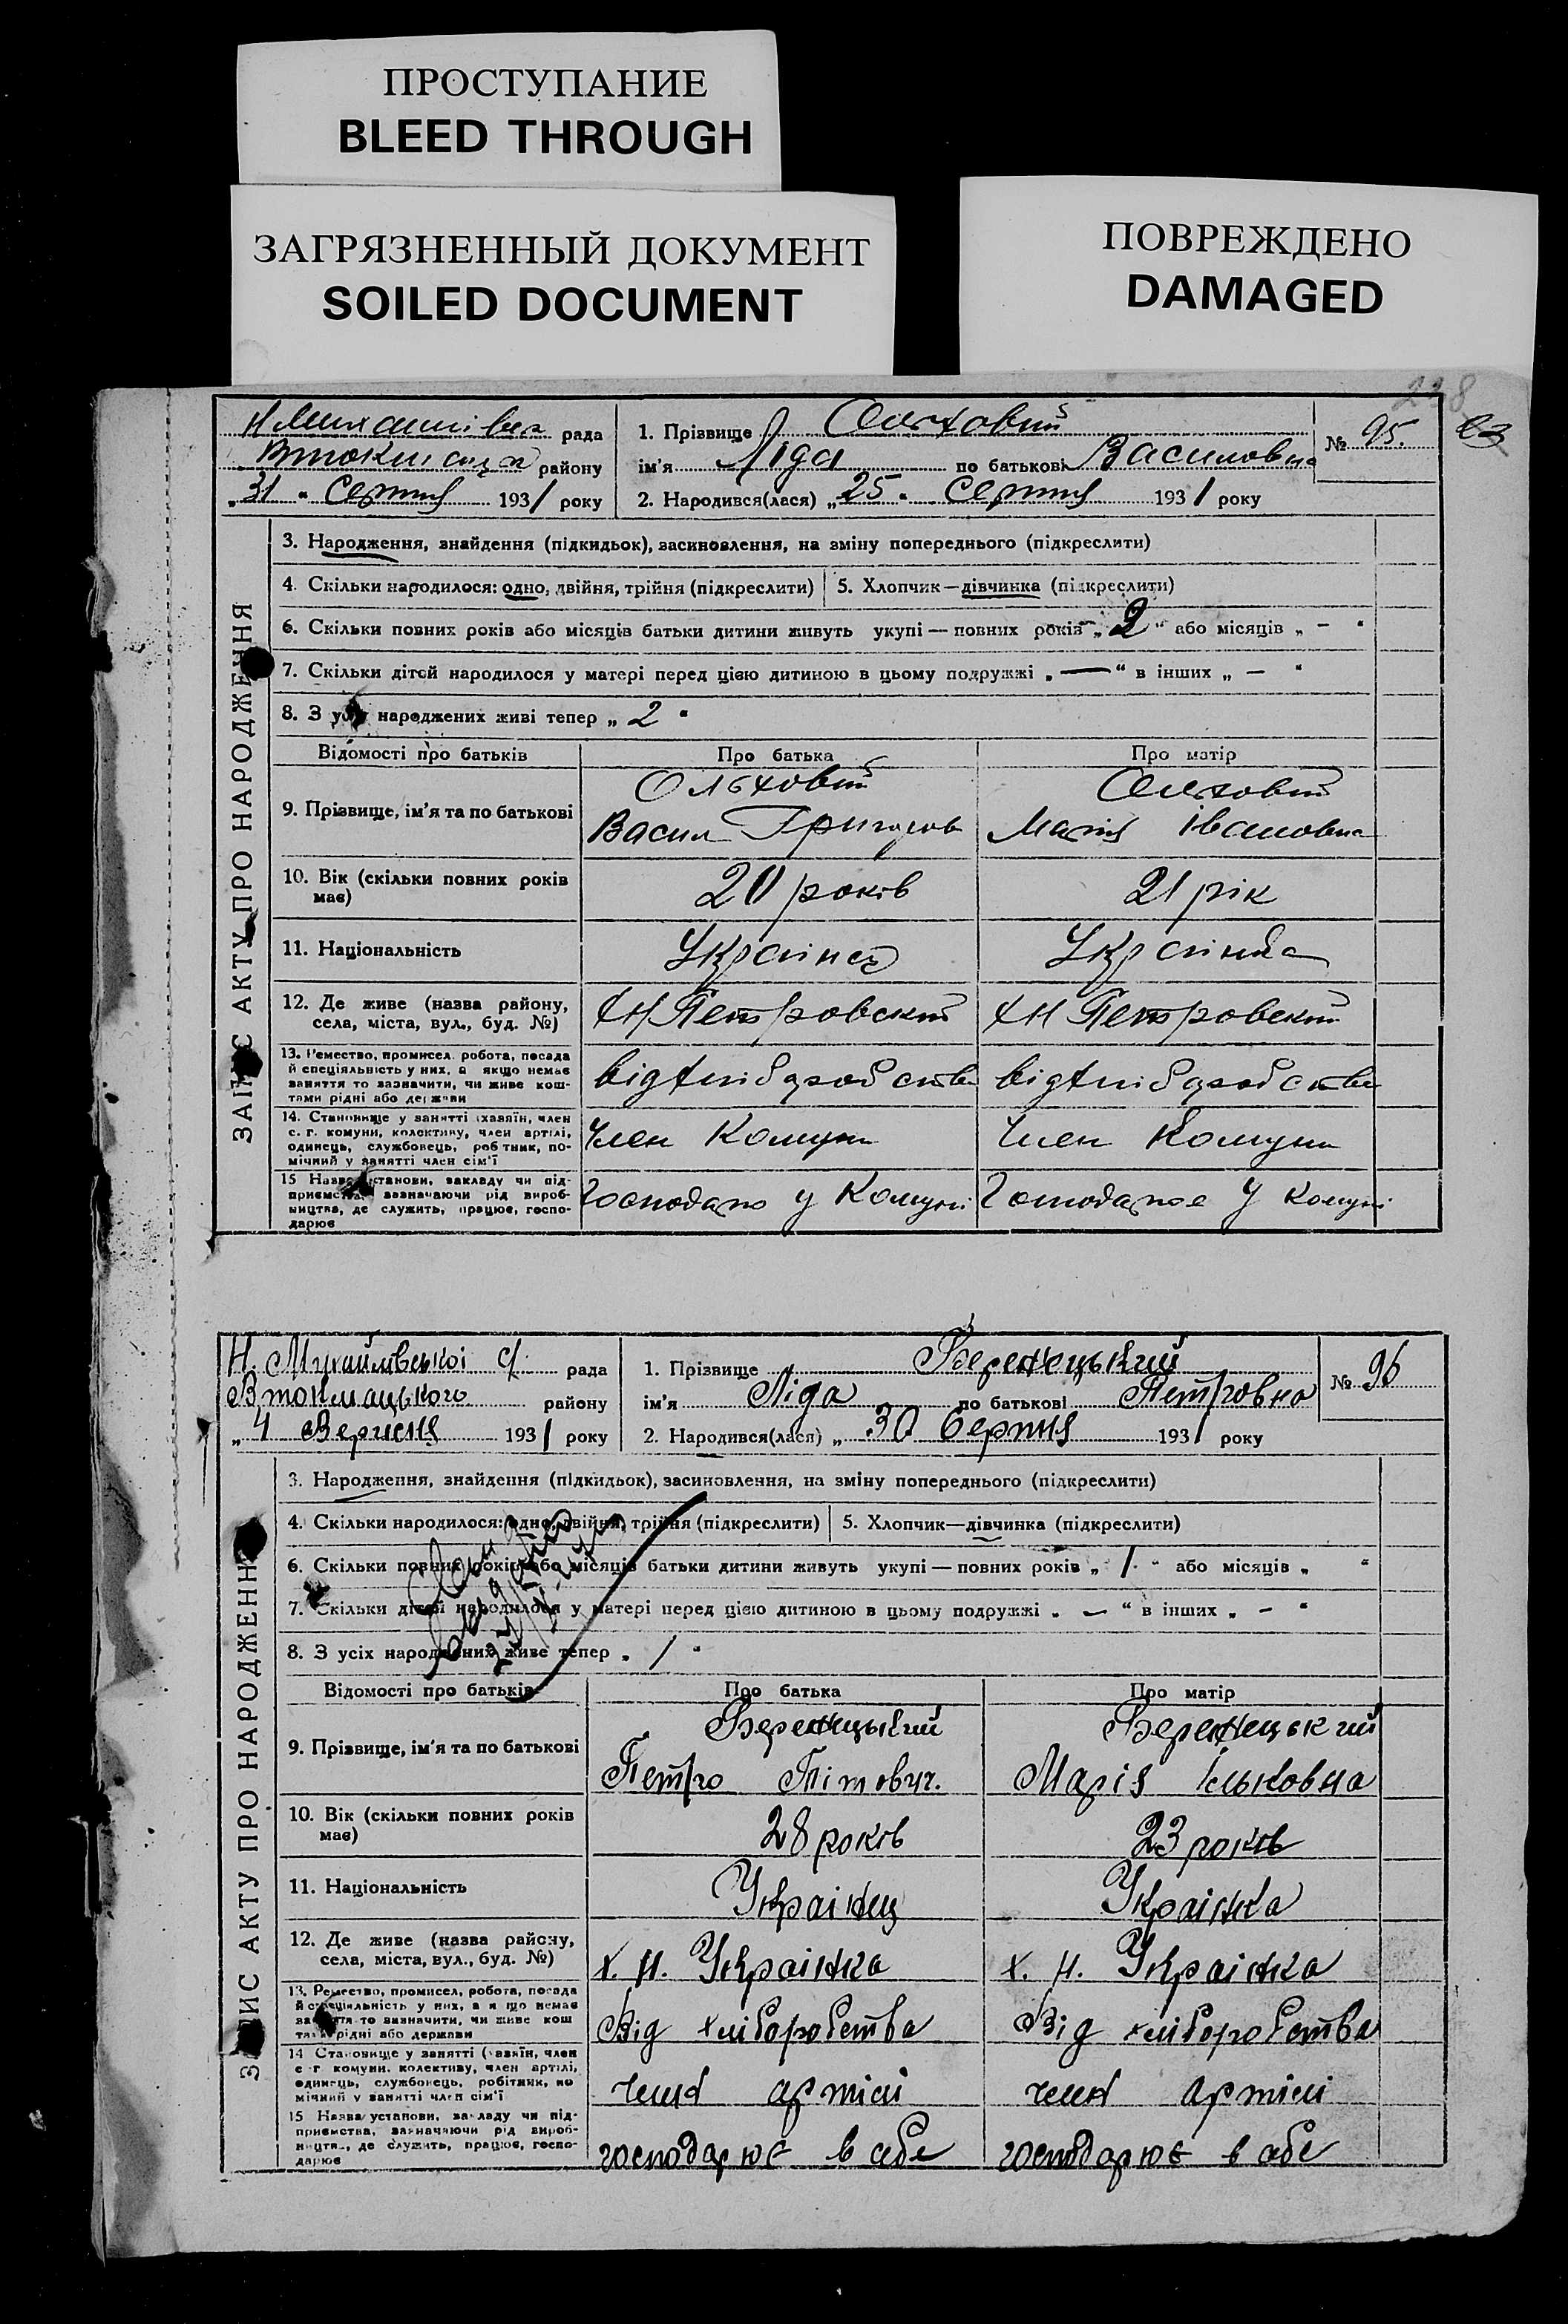 ПРОСТУПАНИЕ
BLEED THROUGH
ЗАГРЯЗНЕННЫЙ ДОКУМЕНТ
SOILED DOCUMENT
ПОВРЕЖДЕНО
DAMAGED
238
рада
району
„31" Серпня 1931 року
1. Прізвище Ольховий
ім'я Ліда по батькові Василовна
2. Народився(лася) „25" Серпня 1931 року
№ 95.
ЗАПИС АКТУ ПРО НАРОДЖЕННЯ
3. Народження, знайдення (підкидьок), засиновлення, на зміну попереднього (підкреслити)
4. Скільки народилося: одно, двійня, трійня (підкреслити) 5. Хлопчик—дівчинка (підкреслити)
6. Скільки повних років або місяців батьки дитини живуть укупі — повних років „2" або місяців „—"
7. Скільки дітей народилося у матері перед цією дитиною в цьому подружжі „—" в інших „—"
8. З усіх народжених живі тепер „2"
Відомості про батьків Про батька Про матір
9. Прізвище, ім'я та по батькові
Ольховий
Васил Григоров
Ольховий
Марія Івановна
10. Вік (скільки повних років
має)
20 років
21 рік
11. Національність
Українец
Українка
12. Де живе (назва району,
села, міста, вул., буд. №)
хН Петровский
хН Петровский
13. Ремество, промисел, робота, посада
й спеціяльність у них, а якщо немає
заняття то зазначити, чи живе кош-
тами рідні або держави
від хліборобства
від хліборобства
14. Становище у занятті (хазяїн, член
с. г. комуни, колективу, член артілі,
одинець, службовець, робітник, по-
мічний у занятті член сім'ї
Член Комуни
Член Комуни
15 Назва установи, закладу чи під-
приємства, зазначаючи рід вироб-
ництва, де служить, працює, госпо-
дарює
у Комуні
Господарює у Комуні
Н. Михайлівської с/ рада
Втокмацького району
„4 Вересня 1931 року
1. Прізвище Вережецький
ім'я Ліда по батькові Петровна
2. Народився(лася) „30 Серпня 1931 року
№ 96
ЗАПИС АКТУ ПРО НАРОДЖЕННЯ
3. Народження, знайдення (підкидьок), засиновлення, на зміну попереднього (підкреслити)
4. Скільки народилося: одно, двійня, трійня (підкреслити) 5. Хлопчик—дівчинка (підкреслити)
6. Скільки повних років або місяців батьки дитини живуть укупі — повних років „1" або місяців „ "
7. Скільки дітей народилося у матері перед цією дитиною в цьому подружжі „—" в інших „—"
8. З усіх народжених живе тепер „1"
Відомості про батьків Про батька Про матір
9. Прізвище, ім'я та по батькові
Вережецький
Петро Тітович.
Вережецький
Марія Ільковна
10. Вік (скільки повних років
має)
28 років
23 років
11. Національність
Українец
Українка
12. Де живе (назва району,
села, міста, вул., буд. №)
х. Н. Українка
х. Н. Українка
13. Ремество, промисел, робота, посада
й спеціяльність у них, а якщо немає
заняття то зазначити, чи живе кош
тами рідні або держави
Від хліборобства
Від хліборобства
14 Становище у занятті (хазяїн, член
с. г. комуни, колективу, член артілі,
одинець, службовець, робітник, по
мічний у занятті член сім'ї
член артілі
член артілі
15 Назва установи, закладу чи під-
приємства, зазначаючи рід вироб-
ництва, де служить, працює, госпо-
дарює
господарює в себе
господарює в себе